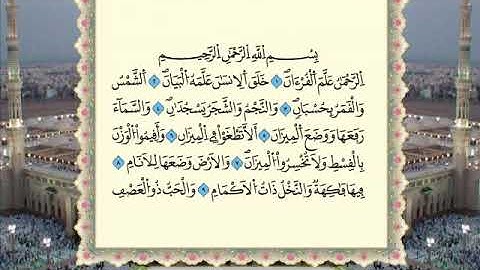 بِسْمِ اِ۬للَّهِ اِ۬لرَّحْمَٰنِ اِ۬لرَّحِيمِ
اِ۬لرَّحْمَٰنُ عَلَّمَ اَ۬لْقُرْءَانَۖ ١ خَلَقَ اَ۬لِانسَٰنَ عَلَّمَهُ اُ۬لْبَيَانَۖ ٢ اَ۬لشَّمْسُ
وَالْقَمَرُ بِحُسْبَانٖۖ ٣ وَالنَّجْمُ وَالشَّجَرُ يَسْجُدَٰنِۖ ٤ وَالسَّمَآءَ
رَفَعَهَا وَوَضَعَ اَ۬لْمِيزَانَ ٥ أَلَّا تَطْغَوْاْ فِي اِ۬لْمِيزَانِۖ ٦ وَأَقِيمُواْ اُ۬لْوَزْنَ
بِالْقِسْطِ وَلَا تُخْسِرُواْ اُ۬لْمِيزَانَۖ ٧ وَالَارْضَ وَضَعَهَا لِلَانَامِ ٨
فِيهَا فَٰكِهَةٞ وَالنَّخْلُ ذَاتُ اُ۬لَاكْمَامِ ٩ وَالْحَبُّ ذُو اُ۬لْعَصْفِ